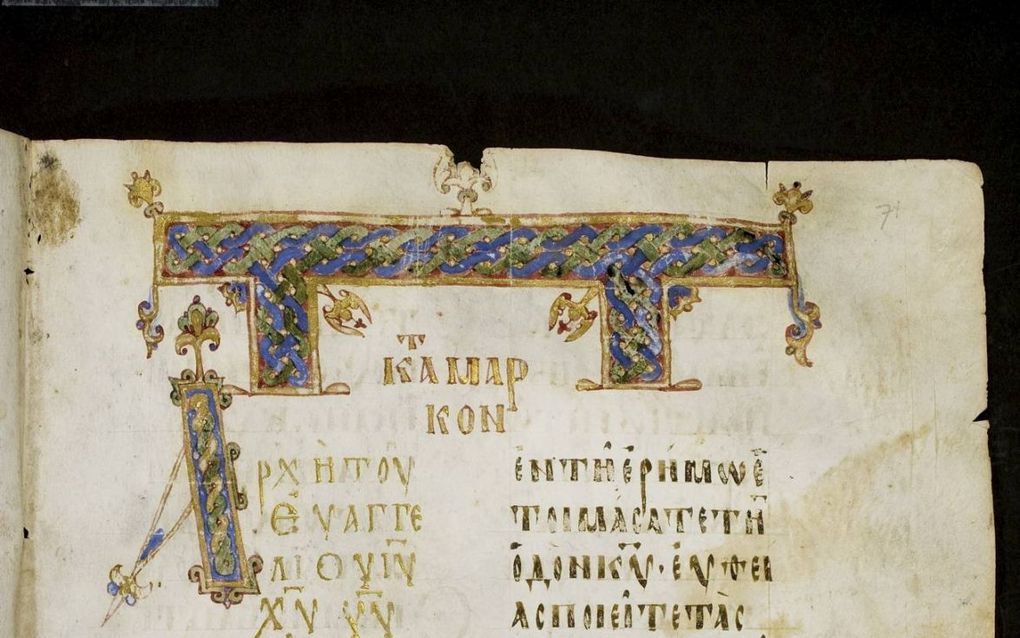 71
ΚΑΤ ΜΑΡ
ΚΟΝ
ΑΡΧΗ ΤΟΥ
ΕΥΑΓΓΕ
ΛΙΟΥ ΙΥ
ΧΥ ΥΥ
ἐν τῆ ἐρήμω ἑ
τοιμάσατε τὴ
ὁδὸν ΚΥ· εὐθεί
ας ποιεῖτε τὰς